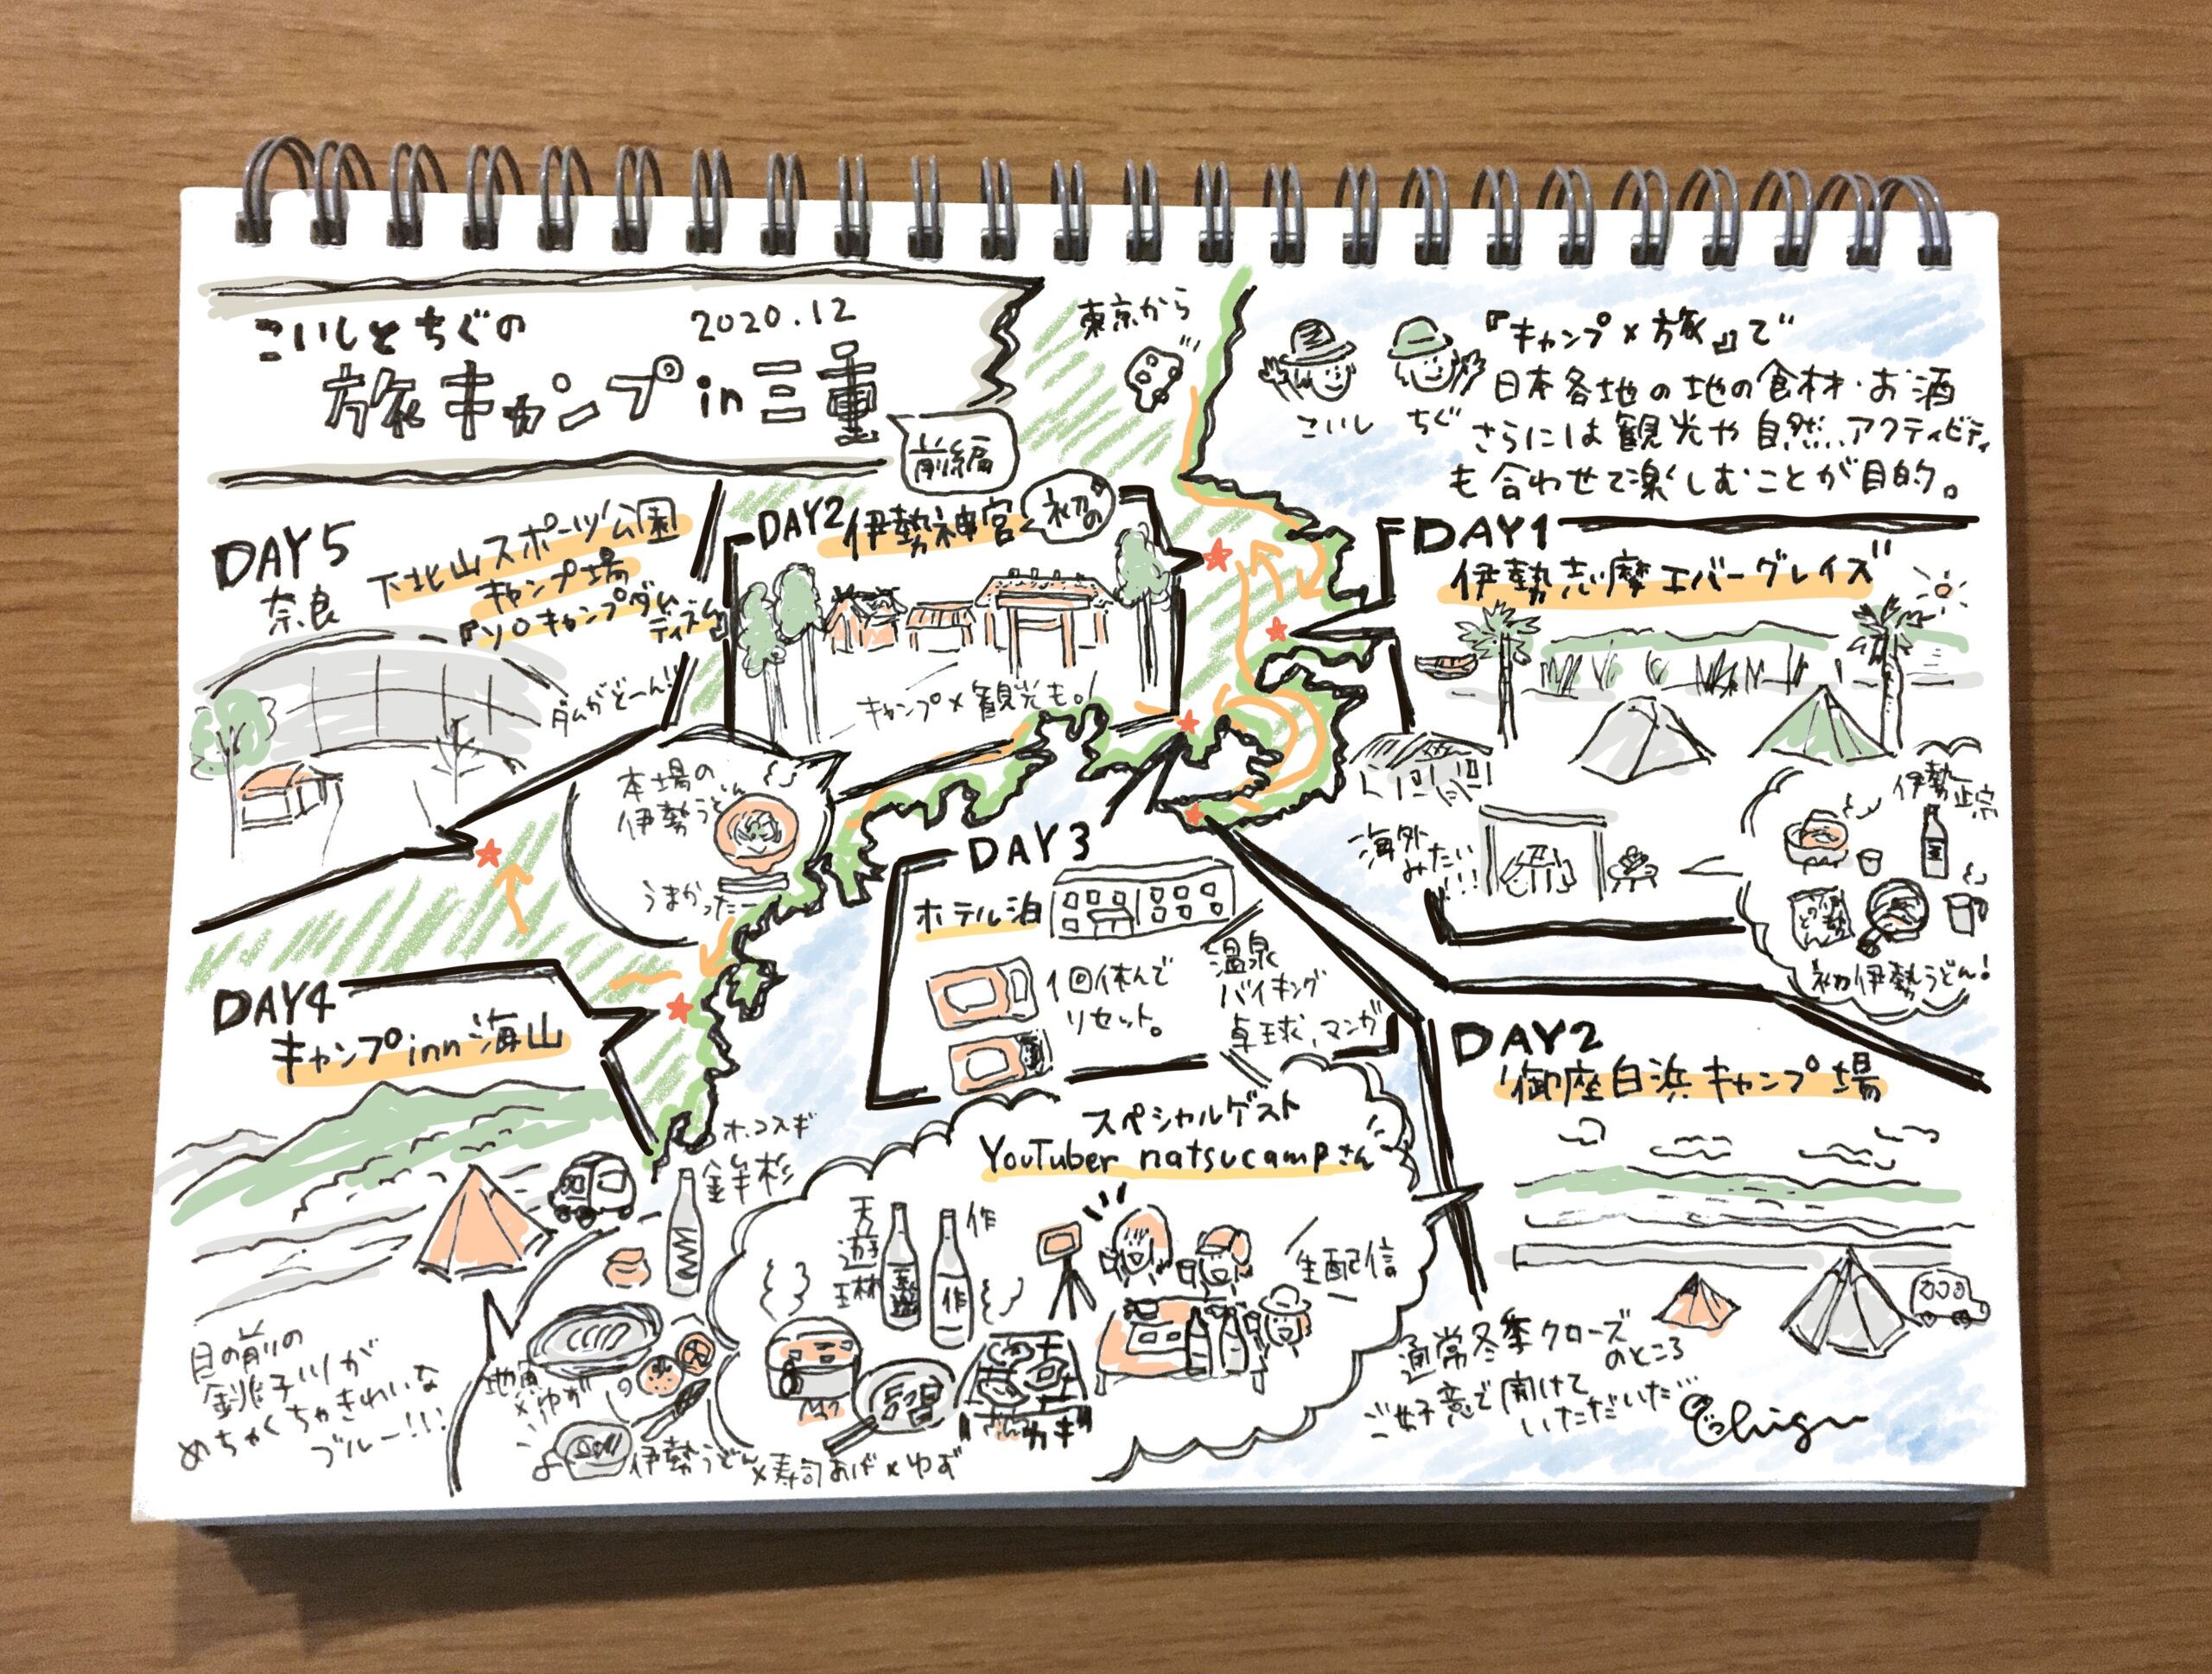 こいしとちぐの
2020.12
旅キャンプin三重
前編
東京から
こいし
ちぐ
『キャンプ×旅』で
日本各地の地の食材・お酒
さらには観光や自然、アクティビティ
も合わせて楽しむことが目的。
DAY1
伊勢志摩エバーグレイズ
海外
みたい
!!!
伊勢
正宗
初伊勢うどん!
DAY2
伊勢神宮
初の
キャンプ×観光も!
本場の
伊勢うどん
うまかったー
DAY2
御座白浜キャンプ場
通常冬季クローズ
のところ
ご好意で開けて
いただいた…
スペシャルゲスト
YouTuber natsucampさん
天遊琳
作
作
生配信
"さんカキ"
DAY3
ホテル泊
1回休んで
リセット。
温泉
バイキング
卓球、マンガ
DAY4
キャンプinn海山
目の前の
銚子川が
めちゃくちゃきれいな
ブルー!!!
ホコスギ
鉾杉
地魚
×ゆず
伊勢うどん×寿司あげ×ゆず
DAY5
奈良
下北山スポーツ公園
キャンプ場
ダムがどーん!!
Chigu